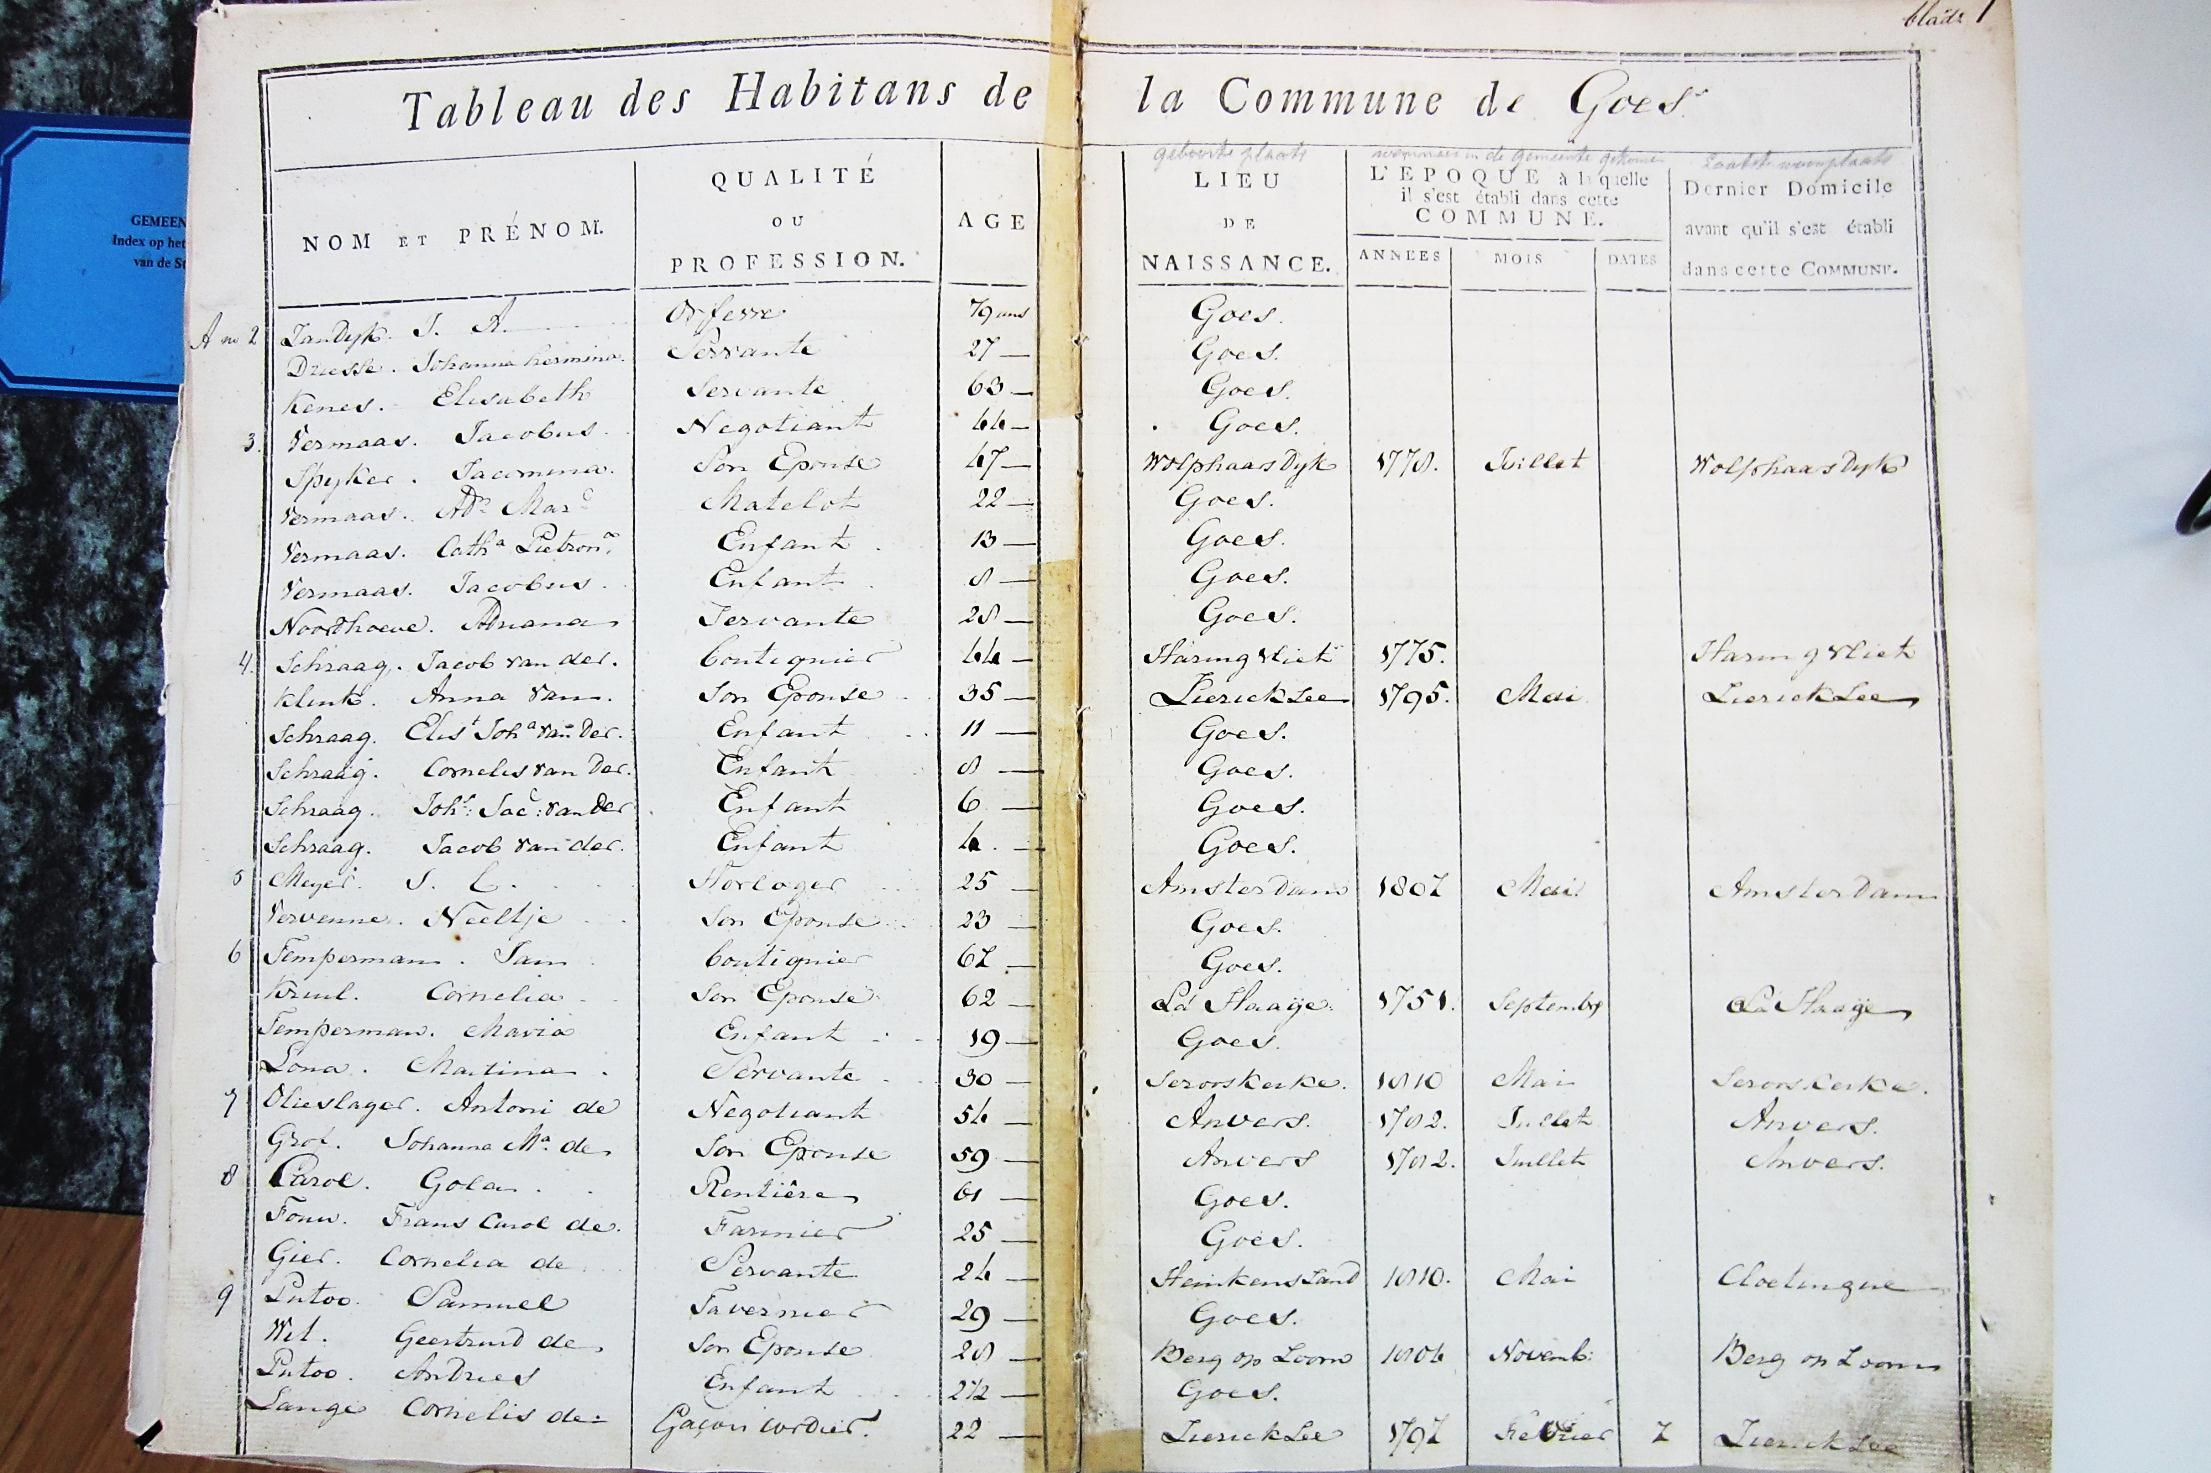 bladz 1
GEMEEN
Index op het
van de St
Tableau des Habitans de la Commune de Goes.
geboorte plaats wanneer in de gemeente gekomen laatste woonplaats
NOM ET PRÉNOM. QUALITÉ OU PROFESSION. AGE LIEU DE NAISSANCE. L'EPOQUE à laquelle il s'est établi dans cette COMMUNE. ANNÉES MOIS DATES Dernier Domicile avant qu'il s'est établi dans cette COMMUNE.
A no 2 ZanDijk. J. A. Orfevre 79 ans Goes.
Driesse. Johanna hermina. Servante 27 — Goes.
Kenes. Elisabeth Servante 63 — Goes.
3. Vermaas. Jacobus. Negotiant 44 — Goes.
Spyker. Jacomina. Son Epouse 47 — WolphaarsDyk 1778. Juillet WolphaarsDyk
Vermaas. Ad.a Mar.c Matelot 22 — Goes.
Vermaas. Cath.a Pietron.a Enfant 13 — Goes.
Vermaas. Jacobus. Enfant 8 — Goes.
Noordhoeve. Adriana Servante 28 — Goes.
4. Schraag. Jacob van der. boutiquier 44 — Haringvliet 1775. Haringvliet
Klink. Anna van. Son Epouse 35 — ZierickZee 1795. Mai ZierickZee
Schraag. Elist Joha van Der. Enfant 11 — Goes.
Schraag. Cornelis van Der. Enfant 8 — Goes.
Schraag. Johs: Jac: van Der Enfant 6 — Goes.
Schraag. Jacob van der. Enfant 4. — Goes.
5 Meyer. S. L. Horloger 25 — AmsterDam 1807 Mai. AmsterDam
Vervenne. Neeltje Son Epouse 23 — Goes.
6 Temperman. Jan boutiquier 67 — Goes.
Kruul. Cornelia Son Epouse 62 — La Haaÿe. 1751. Septembr La Haaÿe
Temperman. Maria Enfant 19 — Goes.
Lona. Martina. Servante 30 — Serooskerke. 1810 Mai Serooskerke.
7 Olieslager. Antoni de Negotiant 54 — Anvers. 1782. Juillet Anvers.
Grot. Johanna Ma. de Son Epouse 59 — Anvers 1782. Juillet Anvers.
8 Carol. Gola Rentière 61 — Goes.
Fouw. Frans Carol de. Farinier 25 — Goes.
Gier. Cornelia de Servante 24 — HeinkensZand 1810. Mai Cloetingue
9 Putoo. Samuel Tavernier 29 — Goes.
Wit. Geertruid de Son Epouse 28 — Berg op Zoom 1804 Novemb: Berg op Zoom
Putoo. Andries Enfant 2 1/2 — Goes.
Lange Cornelis de: Gaçon cordier. 22 — ZierickZee 1797 Fevrier 7 ZierickZee